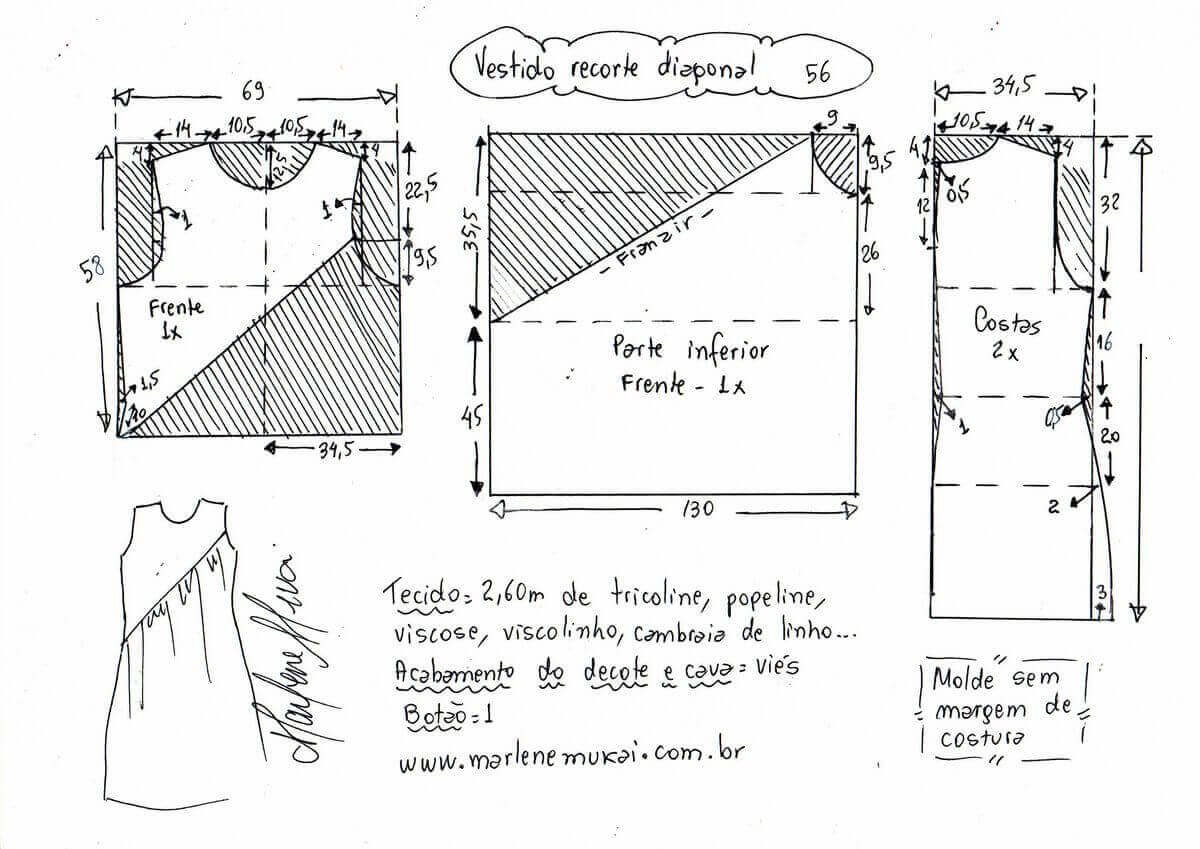 Vestido recorte diagonal 56
69
14 10,5 10,5 14
4
12,5
4
22,5
1
1
9,5
58
Frente
1x
1,5
10
34,5
9
9,5
35,5
- Franzir -
26
Parte inferior
Frente - 1x
45
130
34,5
10,5 14
4
4
0,5
12
32
Costas
2x
16
1
0,5
20
2
3
Tecido = 2,60m de tricoline, popeline,
viscose, viscolinho, cambraia de linho...
Acabamento do decote e cava = viés
Botão = 1
www.marlenemukai.com.br
Molde sem
margem de
costura